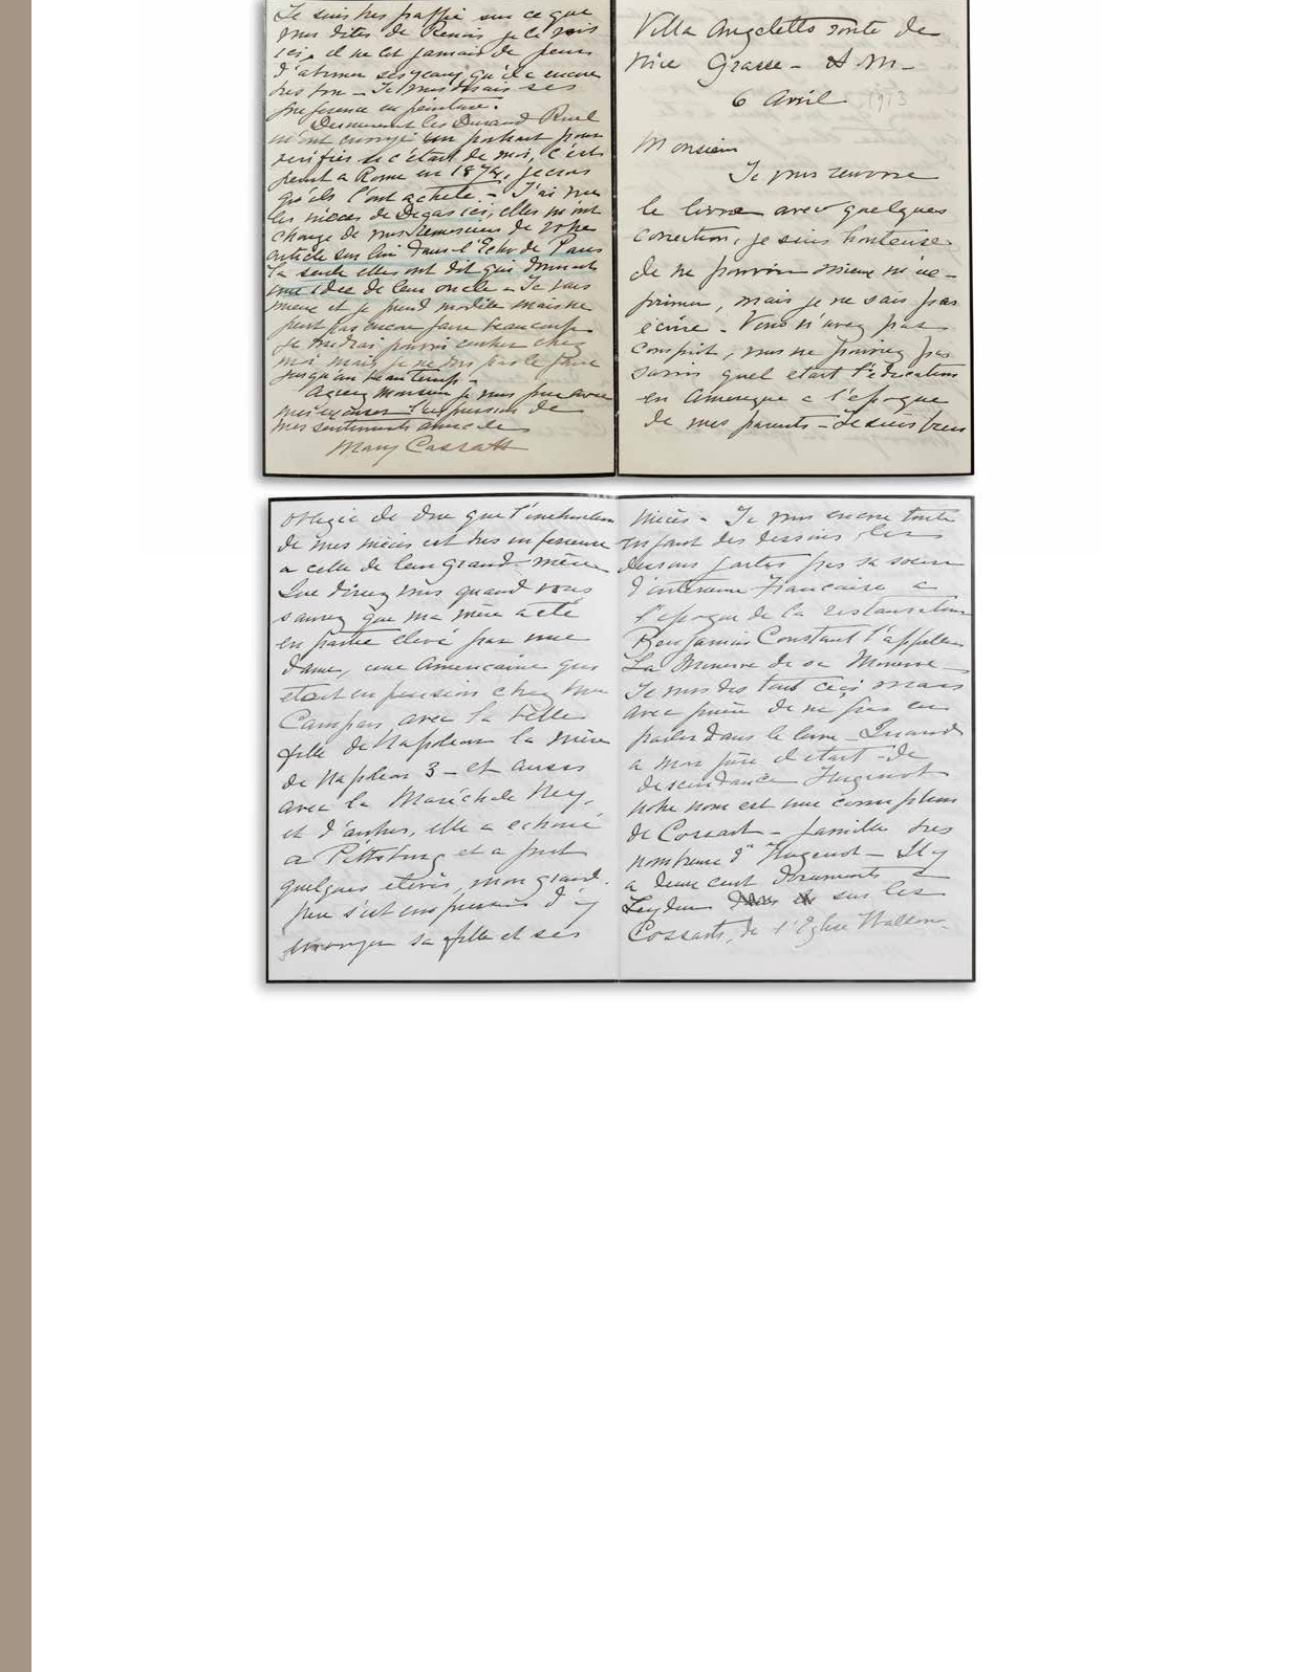 Villa Angeletto route de
Nice Grasse - A. M -
6 Avril 1913
Monsieur
Je vous renvoie
le livre avec quelques
correction, je suis honteuse
de ne pouvoir mieux m'ex-
primer, mais je ne sais pas
écrire - Vous n'avez pas
compris, vous ne pouviez pas
savoir quel etait l'education
en Amerique a l'epoque
de mes parents - Je suis bien
obligée de dire que l'instruction
de mes nièces est tres inferieure
a celle de leur grand-mère
Que direz vous quand vous
saurez que ma mère a été
en partie élevé par une
dame, une Americaine qui
etait en pension chez Mme
Campan, avec la belle
fille de Napoleon la mère
de Napoleon 3 - et aussi
avec la Maréchale Ney,
et d'autres, elle a echoué
a Pittsburg et a pris
quelques élèves, mon grand-
père s'est empressé d'y
envoyer sa fille et ses
nièces - Je vous
des dessins
par sa soeur
Francaise a
l'epoque de la restauration
Benjamin Constant l'appelle
La Minerve de sa Minerve -
Je vous dis tout ceci mais
avec prière de ne pas en
parler dans le livre - Quand
a mon père il etait de
descendance Hugenot
notre nom est une
de Cossart - famille tres
nombreuse d' Hugenot - Il y
a deux cent documents a
Leyden sur les
Cossarts, de l'Eglise Wallon-
Je suis tres sur ce que
vous dites de Renoir je le vois
ici, il ne lit jamais de peur
d'abimer ses yeux, qu'il a encore
tres bon - Je ses
preference en peinture.
Dernierement les Durand Ruel
m'ont envoyé un portrait pour
verifier si c'était de moi, c'est
peint a Rome en 1874, je crois
qu'ils l'ont acheté. - J'ai vu
les nièces de Degas ici, elles m'ont
chargé de vous remercier de votre
article sur lui dans l'Echo de Paris
la seule elles ont dit qui donnait
une idée de leur oncle - Je vais
mieux et je prend modèle mais ne
peut pas encore faire beaucoup
Je voudrai pouvoir rentrer chez
moi mais je ne dois pas le faire
jusqu'au beau temps -
Agreez Monsieur je vous prie avec
mes excuses l'expression de
mes sentiments
Mary Cassatt